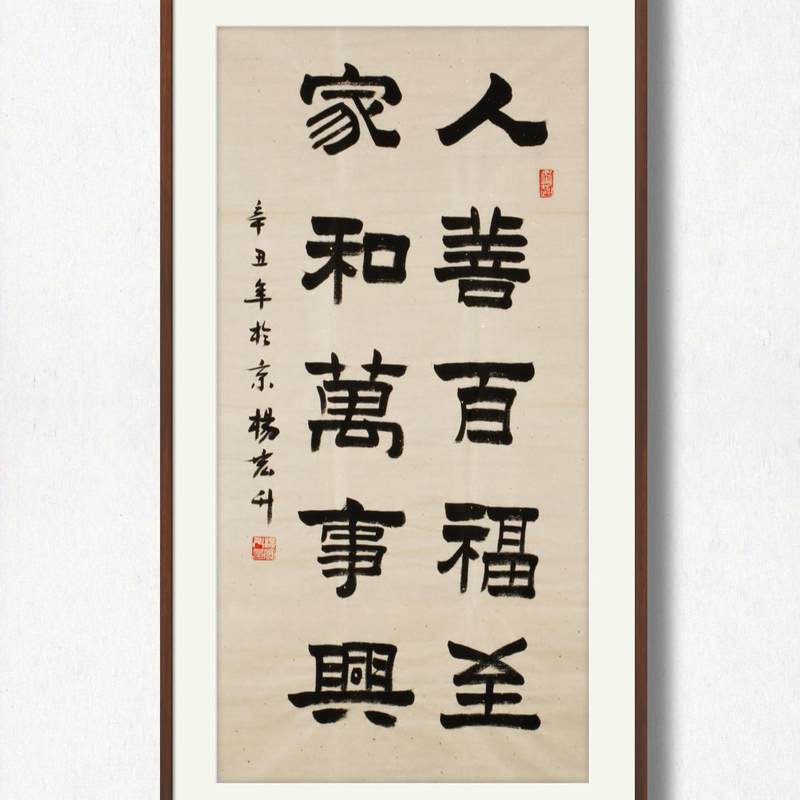 人善百福至
家和萬事興
辛丑年於京 楊宏升